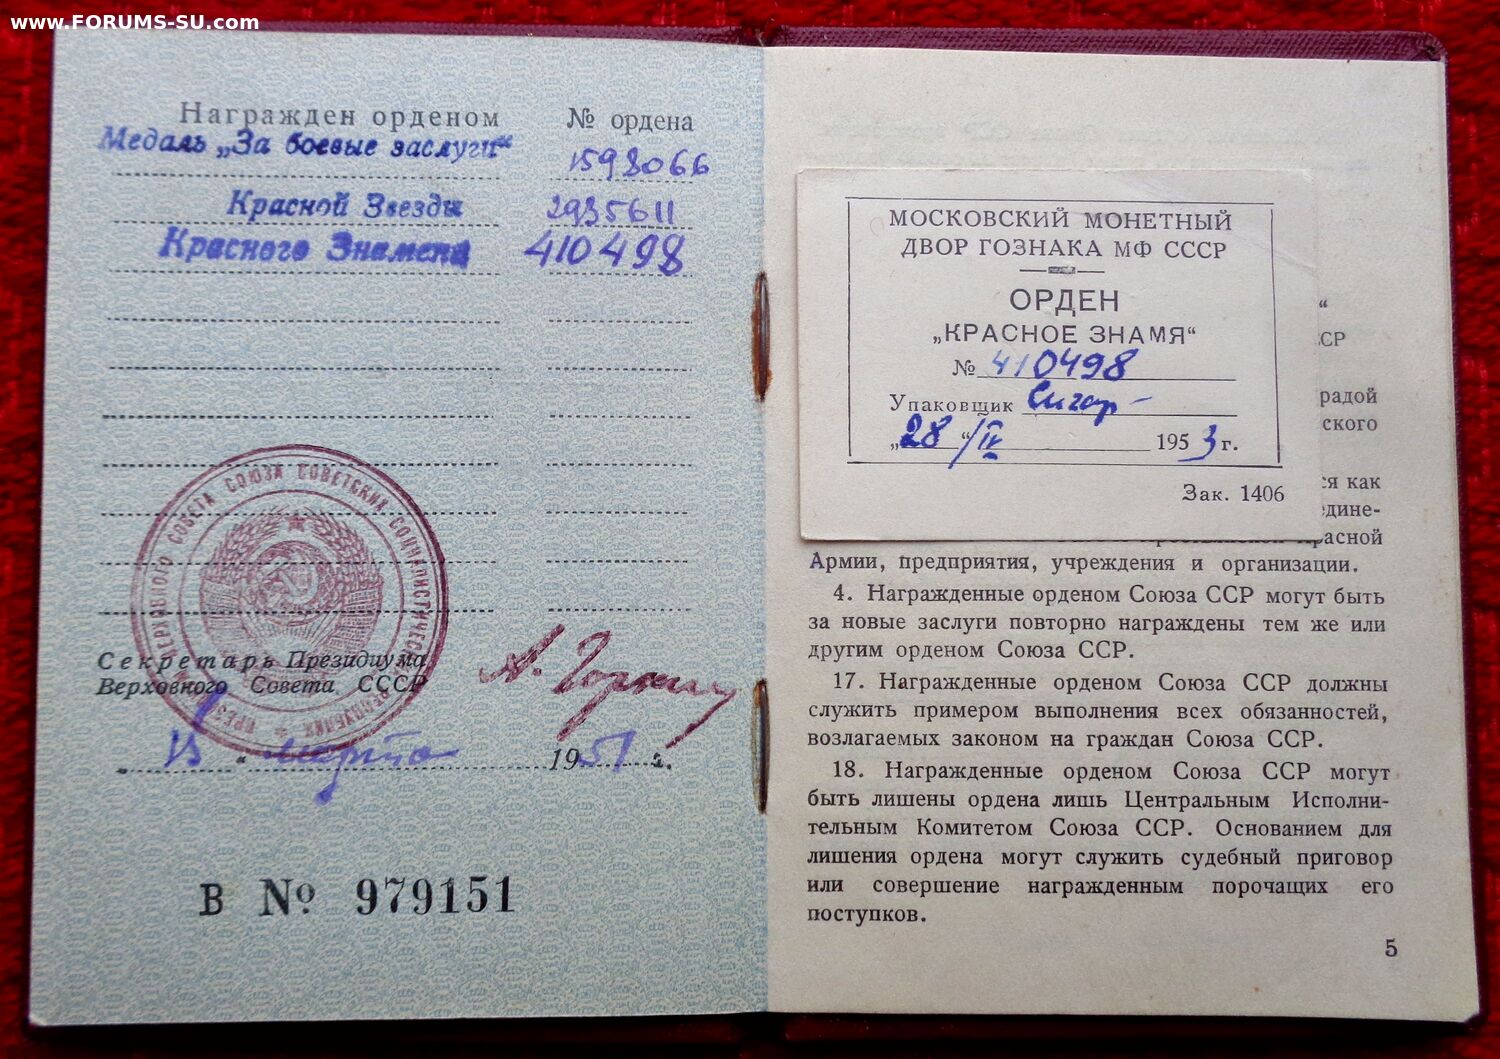 www.FORUMS-SU.com
Награжден орденом № ордена
Медаль „За боевые заслуги“ 1598066
Красной Звезды 2935611
Красного Знамена 410498
ПРЕЗИДИУМ ВЕРХОВНОГО СОВЕТА СОЮЗА СОВЕТСКИХ СОЦИАЛИСТИЧЕСКИХ РЕСПУБЛИК
Секретарь Президиума
Верховного Совета СССР
А. Горкин
марта 1951 г.
В № 979151
МОСКОВСКИЙ МОНЕТНЫЙ
ДВОР ГОЗНАКА МФ СССР
ОРДЕН
„КРАСНОЕ ЗНАМЯ“
№ 410498
Упаковщик
„28“/IV 1953 г.
Зак. 1406
“
СР
радой
ского
ся как
едине-
расной
Армии, предприятия, учреждения и организации.
4. Награжденные орденом Союза ССР могут быть
за новые заслуги повторно награждены тем же или
другим орденом Союза ССР.
17. Награжденные орденом Союза ССР должны
служить примером выполнения всех обязанностей,
возлагаемых законом на граждан Союза ССР.
18. Награжденные орденом Союза ССР могут
быть лишены ордена лишь Центральным Исполни-
тельным Комитетом Союза ССР. Основанием для
лишения ордена могут служить судебный приговор
или совершение награжденным порочащих его
поступков.
5